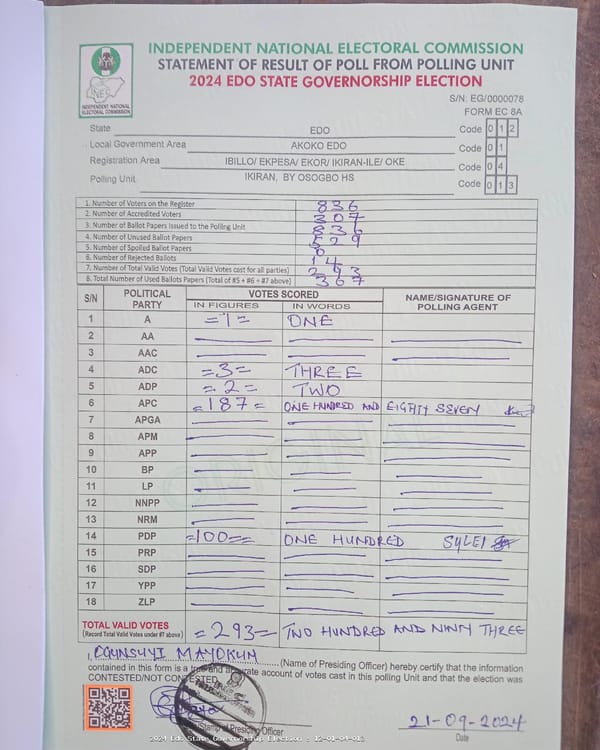 INDEPENDENT NATIONAL ELECTORAL COMMISSION
STATEMENT OF RESULT OF POLL FROM POLLING UNIT
2024 EDO STATE GOVERNORSHIP ELECTION
INEC
INDEPENDENT NATIONAL
ELECTORAL COMMISSION
S/N: EG/0000078
FORM EC 8A
State EDO Code 0 1 2
Local Government Area AKOKO EDO Code 0 1
Registration Area IBILLO/ EKPESA/ EKOR/ IKIRAN-ILE/ OKE Code 0 4
Polling Unit IKIRAN, BY OSOGBO HS Code 0 1 3
1. Number of Voters on the Register 836
2. Number of Accredited Voters 307
3. Number of Ballot Papers Issued to the Polling Unit 836
4. Number of Unused Ballot Papers 529
5. Number of Spoiled Ballot Papers 0
6. Number of Rejected Ballots 14
7. Number of Total Valid Votes (Total Valid Votes cast for all parties) 293
8. Total Number of Used Ballots Papers (Total of #5 + #6 + #7 above) 307
S/N POLITICAL PARTY VOTES SCORED NAME/SIGNATURE OF POLLING AGENT
IN FIGURES IN WORDS
1 A =1= ONE
2 AA
3 AAC
4 ADC =3= THREE
5 ADP =2= TWO
6 APC =187= ONE HUNDRED AND EIGHTY SEVEN
7 APGA
8 APM
9 APP
10 BP
11 LP
12 NNPP
13 NRM
14 PDP =100== ONE HUNDRED
15 PRP
16 SDP
17 YPP
18 ZLP
TOTAL VALID VOTES =293= TWO HUNDRED AND NINTY THREE
(Record Total Valid Votes under #7 above)
I, OGUNSUYI MAYOKUN (Name of Presiding Officer) hereby certify that the information
contained in this form is a true and accurate account of votes cast in this polling Unit and that the election was
CONTESTED/NOT CONTESTED.
21-09-2024
Stamp of Presiding Officer
Date
2024 Edo State Governorship Election - 12-01-04-013